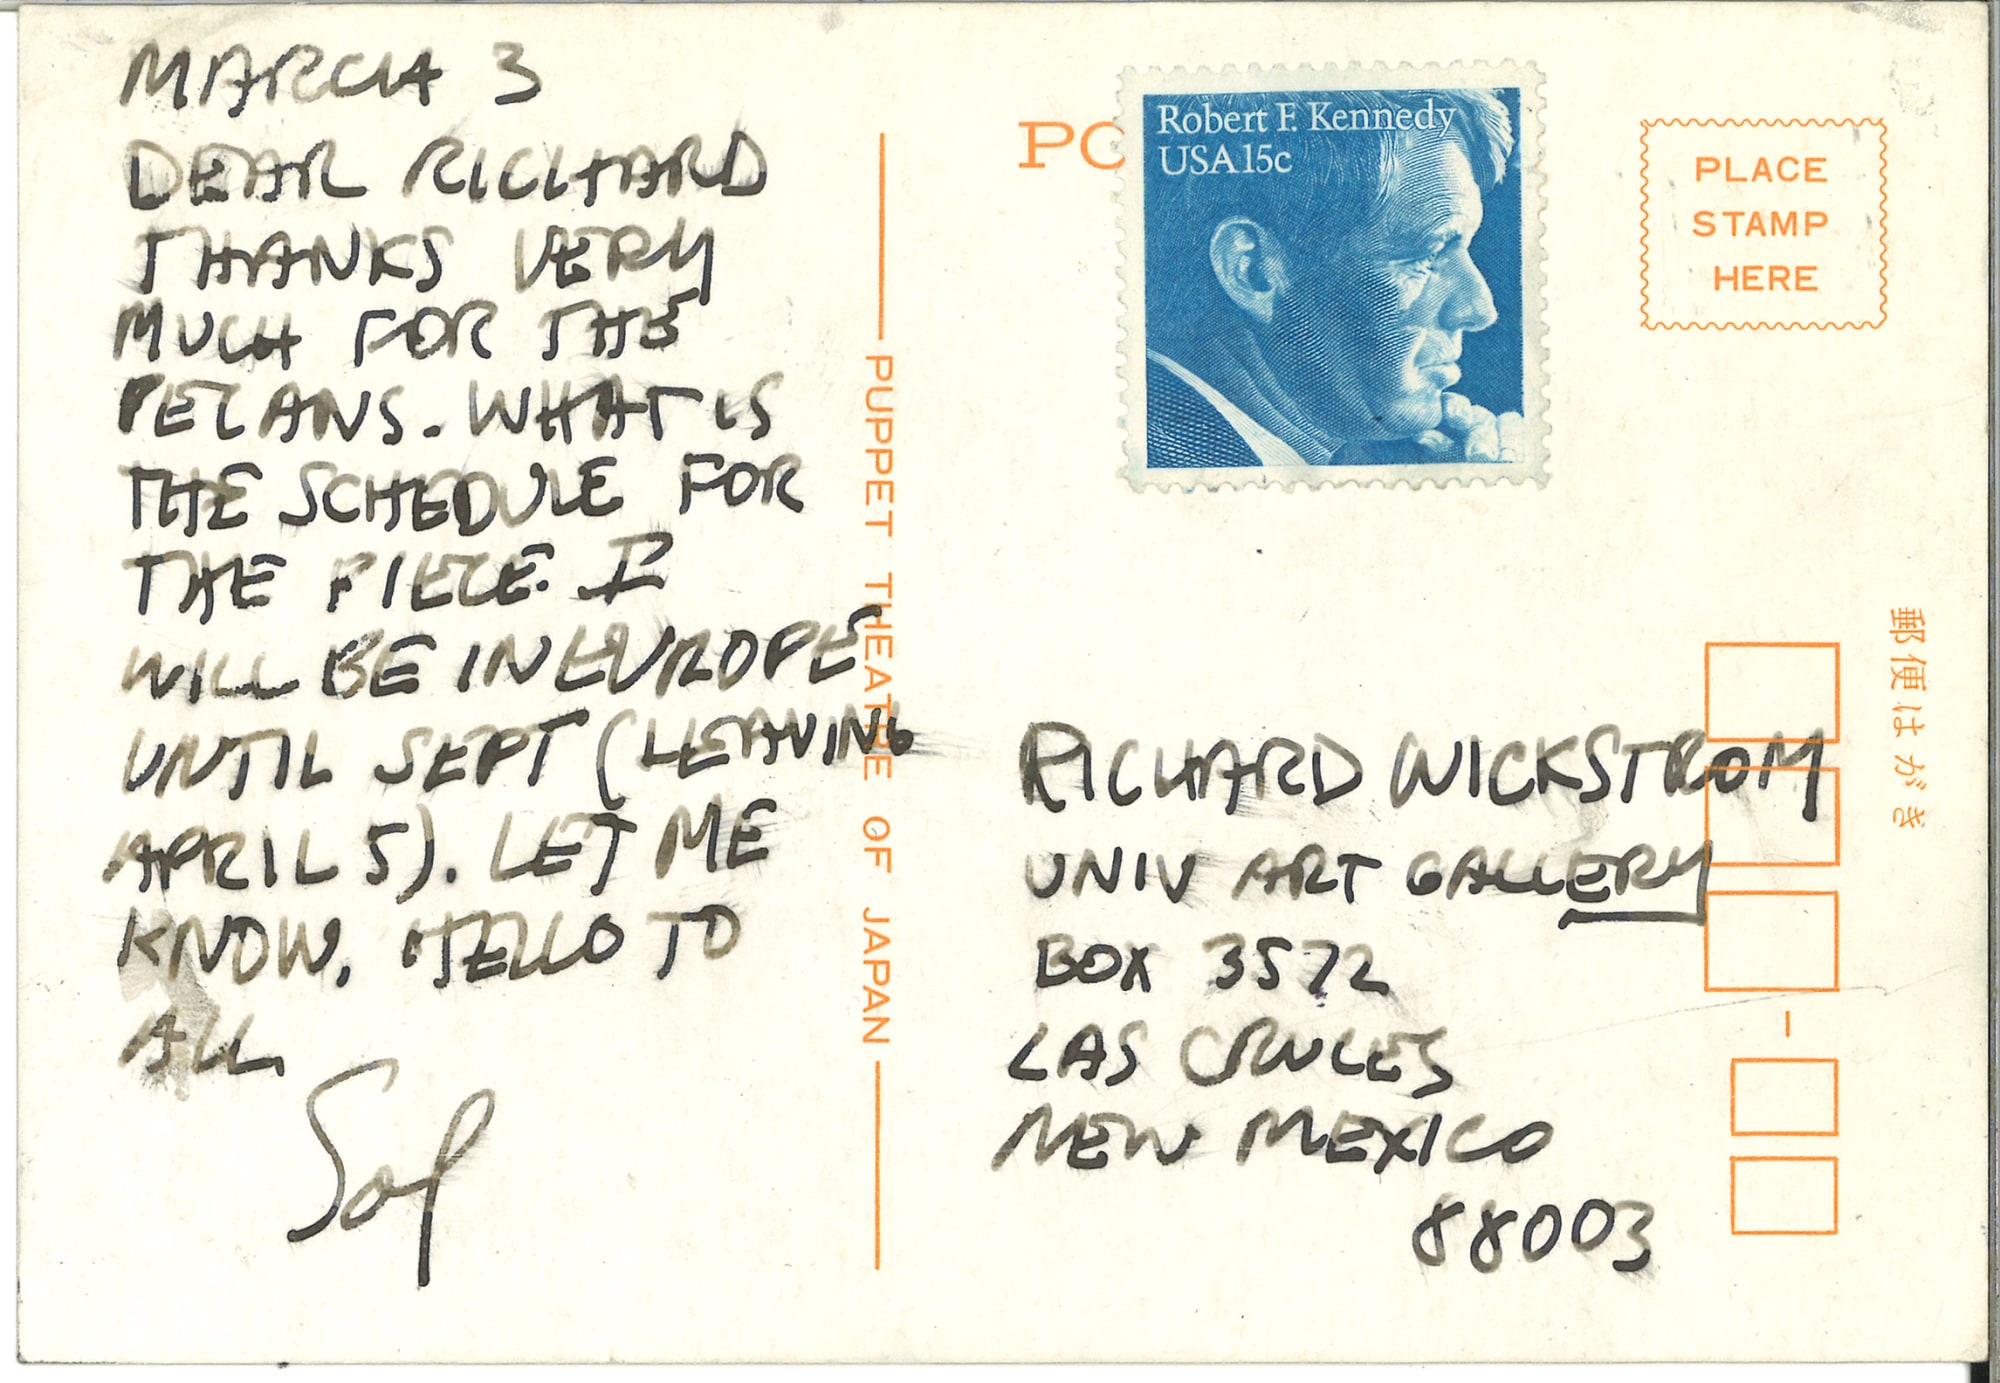 MARCH 3
DEAR RICHARD
THANKS VERY
MUCH FOR THE
PECANS. WHAT IS
THE SCHEDULE FOR
THE PIECE. I
WILL BE IN EUROPE
UNTIL SEPT (LEAVING
APRIL 5). LET ME
KNOW. HELLO TO
ALL
Sol
PUPPET THEATRE OF JAPAN
PO
Robert F. Kennedy
USA 15c
PLACE
STAMP
HERE
郵便はがき
RICHARD WICKSTROM
UNIV ART GALLERY
BOX 3572
LAS CRUCES
NEW MEXICO
88003